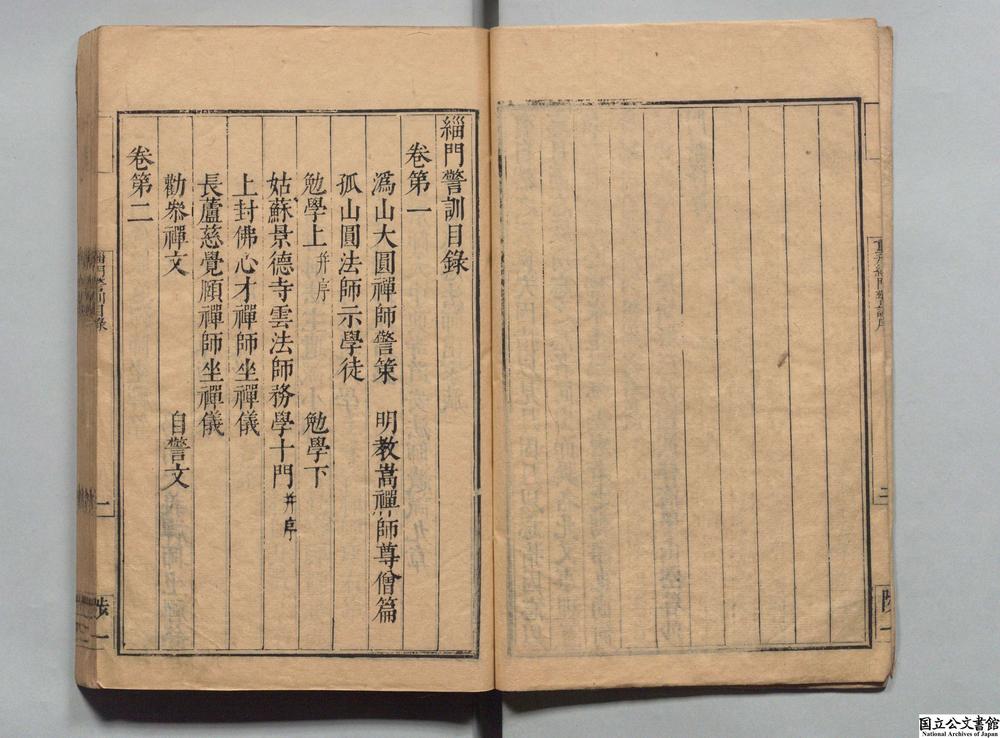 緇門警訓目錄
卷第一
溈山大圓禪師警策　明教嵩禪師尊僧篇
孤山圓法師示學徒
勉學上并序　勉學下
姑蘇景德寺雲法師務學十門并序
上封佛心才禪師坐禪儀
長蘆慈覺頤禪師坐禪儀
勸叅禪文　自警文
卷第二
緇門警訓目錄
一
国立公文書館
National Archives of Japan